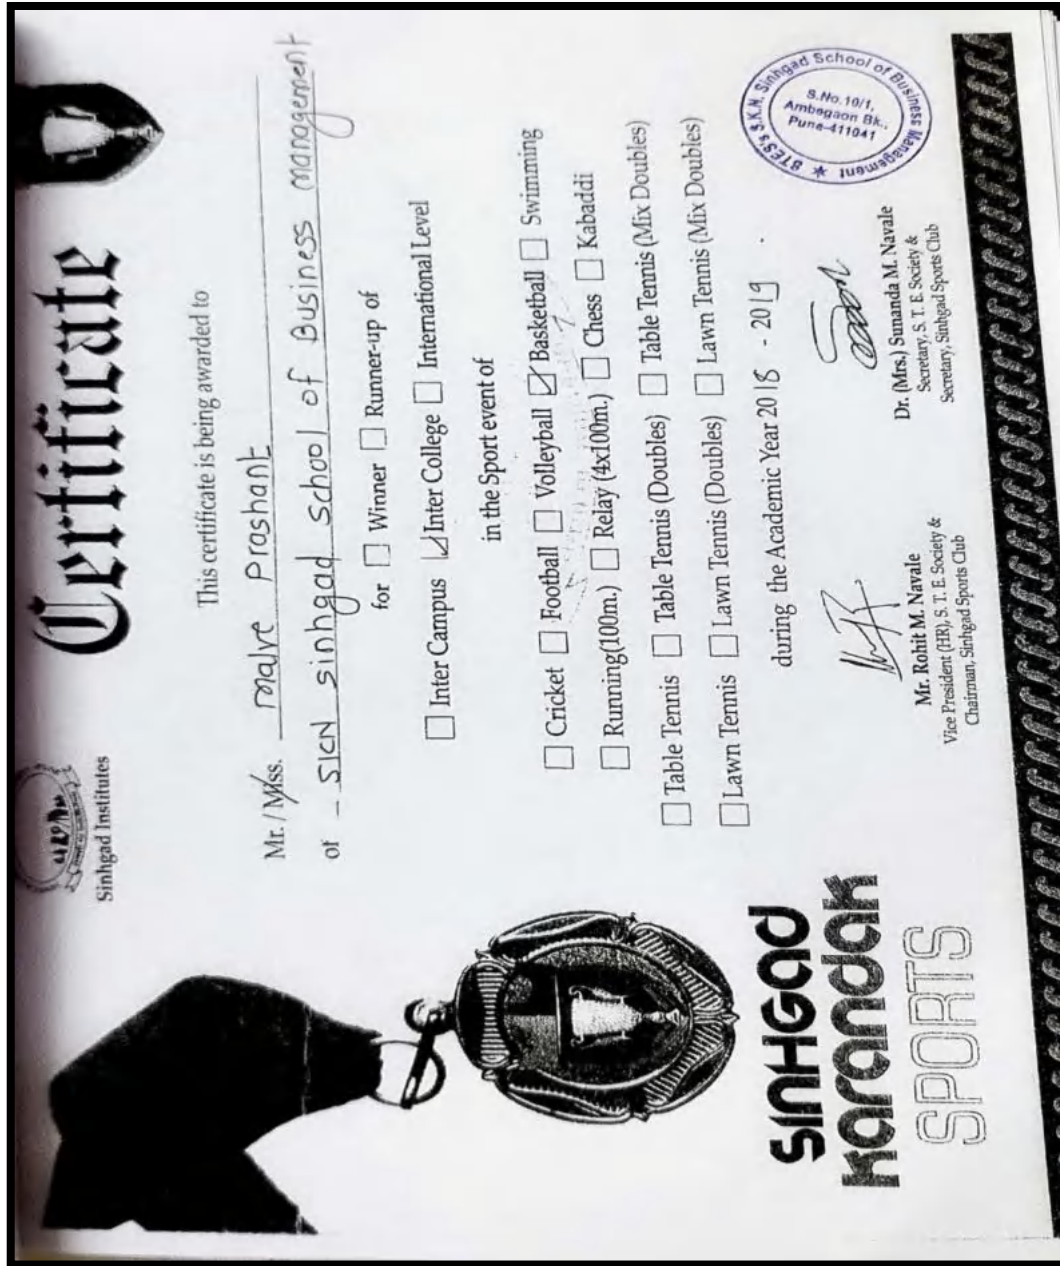 Sinhgad Institutes
Certificate
This certificate is being awarded to
Mr. / Miss. Malve Prashant
of SKN sinhgad school of Business Management
for Winner Runner-up of
Inter Campus Inter College International Level
in the Sport event of
Cricket Football Volleyball Basketball Swimming
Running(100m.) Relay (4x100m.) Chess Kabaddi
Table Tennis Table Tennis (Doubles) Table Tennis (Mix Doubles)
Lawn Tennis Lawn Tennis (Doubles) Lawn Tennis (Mix Doubles)
during the Academic Year 2018 - 2019
SINHGAD
KARANDAK
SPORTS
Mr. Rohit M. Navale
Vice President (HR), S. T. E. Society &
Chairman, Sinhgad Sports Club
Dr. (Mrs.) Sunanda M. Navale
Secretary, S. T. E. Society &
Secretary, Sinhgad Sports Club
STES's S.K.N. Sinhgad School of Business Management
S.No.10/1,
Ambegaon Bk.,
Pune-411041